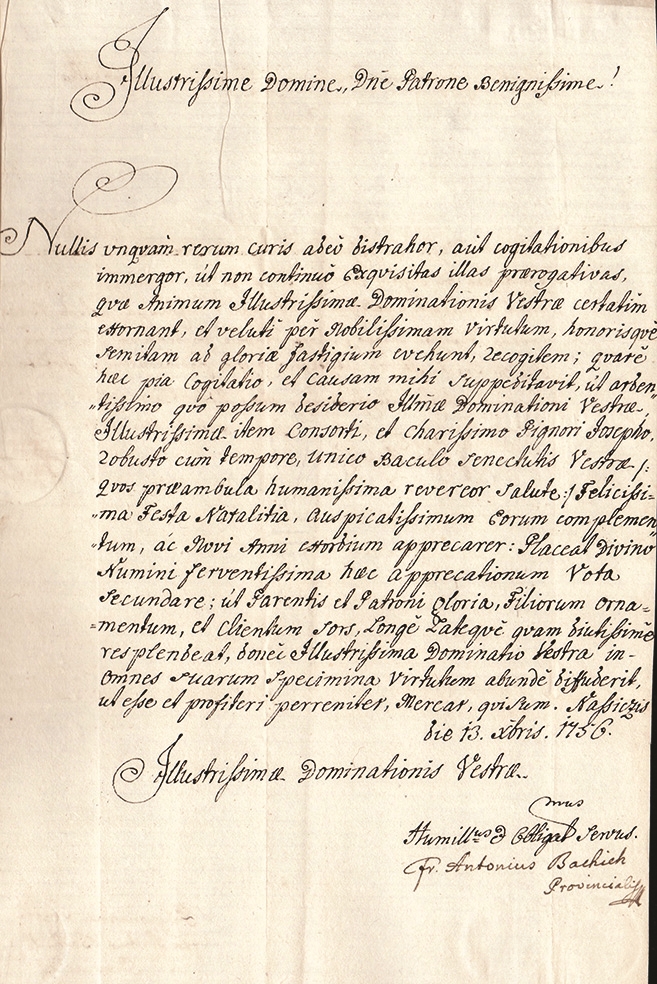 Illustrissime Domine, Dnē Patrone Benignissime!
Nullis unquam rerum curis adeò distrahor, aut cogitationibus
immergor, ut non continuò exquisitas illas prærogativas,
quæ Animum Illustrissimæ Dominationis Vestræ certatim
exornant, et veluti per Nobilissimam virtutum, honorisquè
semitam ad gloriæ fastigium evehunt, recogitem; quarè
hæc pia Cogitatio, et Causam mihi suppeditavit, út arden„
„tissimo quò possum desiderio Illm̄æ Dominationi Vestræ,
Illustrissimæ item Consorti, et Charissimo Pignori Josepho,
robusto cum tempore, unico Baculo Senectutis Vestræ /:
quos præambula humanissima revereor salute :/ Felicissi-
„ma Festa Natalitia, Auspicatissimum Eorum complemen„
„tum, ác Novi Anni exordium apprecarer: Placeat Divino
Numini ferventissima hæc apprecationum Vota
secundare; út Parentis et Patroni gloria, Filiorum orna-
-mentum, et Clientum sors, Longè Latequè quam diutissimè
resplendeat, donec Illustrissima Dominatio Vestra in-
omnes suarum specimina virtutum abundè diffuderit,
ut esse et profiteri perenniter, Mercar, qui sum. Nassiczis
die 13. Xbris. 1756.
Illustrissimæ Dominationis Vestræ
mus
Humill<sup>us</sup> & Obligat Servus.
Fr. Antonius Bachich
Provincialis